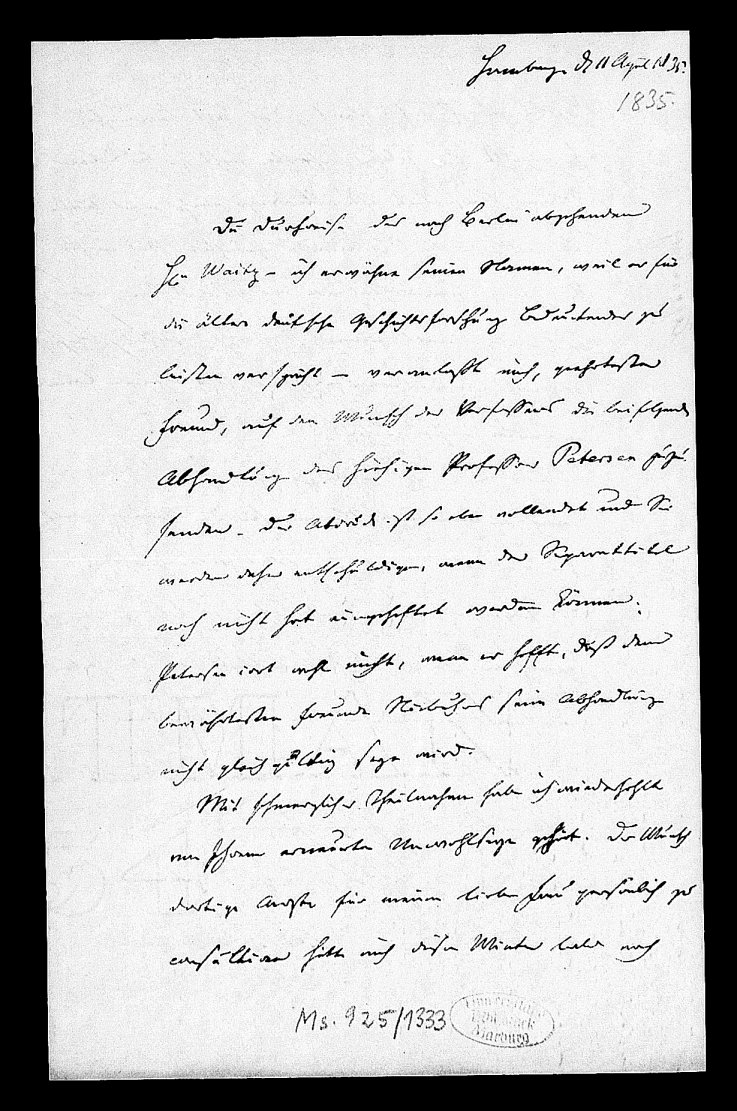 Hamburg d 11 April 1835.
1835.
Die Durchreise des nach Berlin abgehenden
Hrn Waitz – ich erwähne seinen Namen, weil er für
die ältere deutsche Geschichtsforschung Bedeutendes zu
leisten verspricht – veranlaßt mich, geehrtester
Freund, auf den Wunsch des Verfassers die beifolgende
Abhandlung des hiesigen Professor Petersen zuzu-
senden. Der Abdruck ist so eben vollendet und Sie
werden daher entschuldigen, wenn der Separattitel
noch nicht hat eingeheftet werden können.
Petersen irrt nicht, wenn er hofft, daß dem
bewährtesten Freunde Niebuhrs seine Abhandlung
nicht gleichgültig seyn wird.
Mit schmerzlicher Theilnahme habe ich wiederholt
von Ihrem erneuerten Unwohlseyn gehört. Der Wunsch
dortige Aerzte für meine liebe Frau persönlich zu
consultiren hätte mich diesen Winter bald nach
Ms. 925/1333
Universitäts
Bibliothek
Marburg